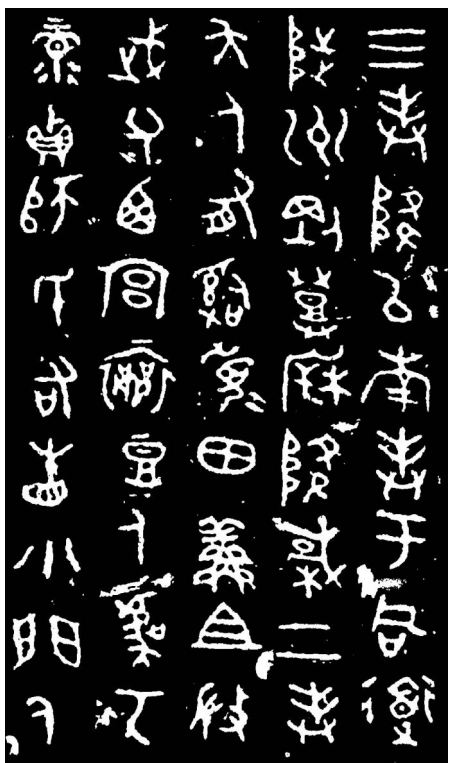 三奉降以南奉于同道
陟州剛登𣂪降棫二奉
夨人有𤔲眉田鮮且𢼸
武父西宮襄豆人虞丂
彔貞師氏右眚小門人